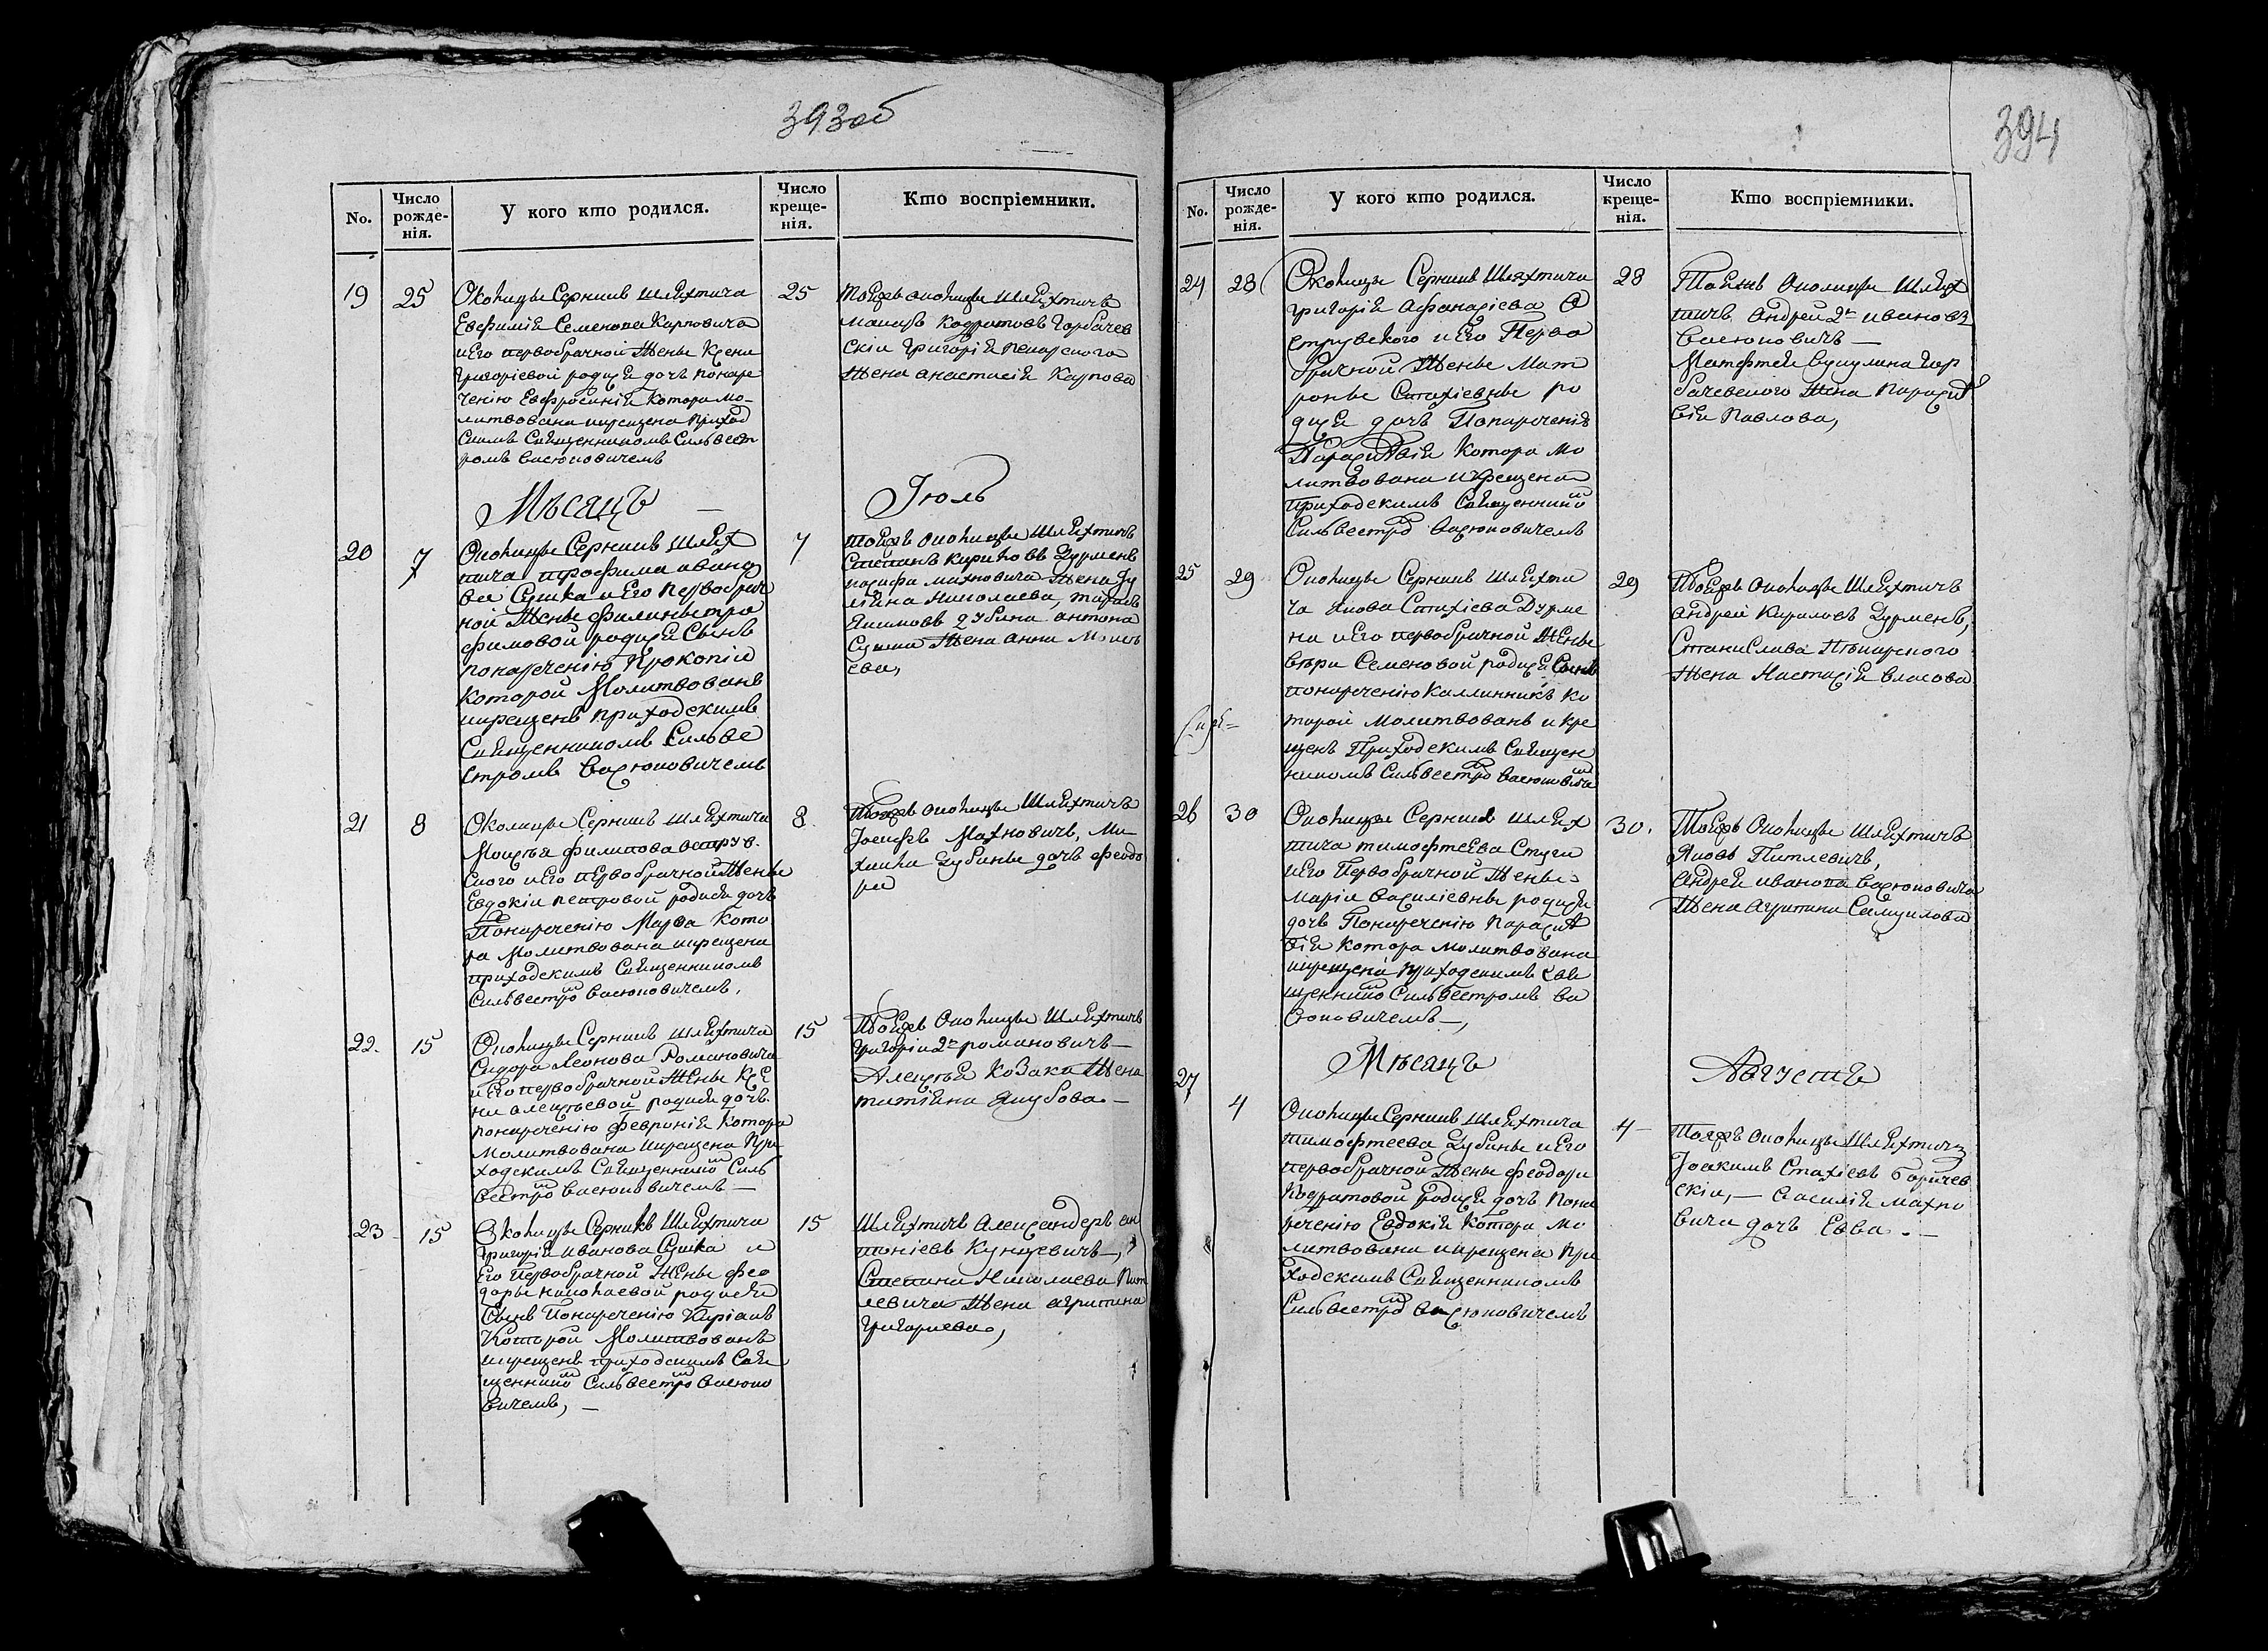 393об
No.
Число
рожде-
нія.
У кого кто родился.
Число
креще-
нія.
Кто воспріемники.
19
25
Околицы Серникъ шляхтича
Евфимія Семенова Карповича
и Его первобрачной Жены Ксени
Григоріевой родися дочь понаре
ченію Евфросинія Котора мо-
литвована икрещена приход
скимъ Священникомъ Сильвест
ромъ Васюковичемъ
25
тояжъ околицы шляхтичъ
Кодратовъ Горбачев
скій Григорія
Жена анастасія Карпова
Мѣсяцъ
Іюль
20
7
Околицы Серникъ шлях
тича трофима ивано
ва Сушка и Его первобрач
ной Жены
фимовой родися Сынъ
понареченію Прокопій
которой Молитвованъ
икрещенъ приходскимъ
Священникомъ Сильве
стромъ Васюковичемъ
7
тояжъ околицы шляхтичъ
Степанъ Кириловъ Дурменъ
махновича Жена Ју
ліяна Николаева,
Якимовъ Зубина антона
Сушка Жена анна Моисе
ева,
21
8
Околицы Серникъ шляхтича
Моисѣя филипова остров-
ского и Его первобрачной Жены
Евдокіи петровой родися дочь
Понареченію Марѳа Кото
ра Молитвована икрещена
приходскимъ Священникомъ
Сильвестро Васюковичемъ,
8
Тояжъ околицы Шляхтичъ
Іосифъ Махновичъ, Ми-
хаила Зубины дочь феодо
ра
22.
15
Околицы Серникъ шляхтича
Сидора Леонова Романовича
и Его первобрачной Жены Ксе
ни алексѣевой родися дочь
понареченію февронія Котора
Молитвована икрещена При
ходскимъ Священнико Силь
вестро Васюковичемъ —
15
Тояжъ Околицы Шляхтичъ
Григорій 2й романовичъ —
Алексѣя Козака Жена
татіяна Якубова. —
23
15
Околицы Серникъ Шляхтича
Григорія иванова Сушка и
Его Первобрачной Жены фео
доры николаевой родися
Сынъ Понареченію Киріакъ
Которой Молитвованъ
икрещенъ приходскимъ Свя
щеннико Сильвестро Васюко
вичемъ, —
15
Шляхтичъ Александеръ ан
тоніевъ Кунцевичъ —,
Степана Николаева Пит
левича Жена агрипина
Григориева,
394
No.
Число
рожде-
нія.
У кого кто родился.
Число
креще-
нія.
Кто воспріемники.
24
28
Околицы Серникъ Шляхтича
Григорія Афанасіева О
стровского и Его Перво
брачной Жены Мат
роны Стахіевны ро
дися дочь Понареченію
Параскевія Котора Мо
литвована икрещена
приходскимъ Священнико
Сильвестро Васюковичемъ
28
Тояжъ Околицы Шлях
тичъ Андрей 2й ивановъ
Васюковичъ —
Матфея Вукулина Гор
бачевского Жена Параске
вія Павлова,
25
29
Околицы Серникъ Шляхти
ча Якова Стахіева Дурме
на и Его первобрачной Жены
Вѣры Семеновой родися Сынъ
понареченію Каллинникъ ко
торой Молитвованъ икре
щенъ Приходскимъ Священ
никомъ Сильвестро Васюковиче
29
Тояжъ Околицы Шляхтичъ
Андрей Кириловъ Дурменъ,
Станислава
Жена Настасія Власова
26
30
Околицы Серникъ шлях
тича тимофтеева Стуги
и Его Первобрачной Жены
Маріи Василіевны родися
дочь Понареченію Параске
вія Котора Молитвована
икрещена приходскимъ Свя
щеннико Сильвестромъ Ва
сюковичемъ —,
30.
Тояжъ Околицы Шляхтичъ
Яковъ Питлевичъ,
Андрея иванова Васюковича
Жена агрипина Самуилова
Мѣсяцъ
Августъ
27
4
Околицы Серникъ шляхтича
тимофтеева Зубины и Его
первобрачной Жены феодоры
Кодратовой родися дочь Пона
реченію Евдокія Котора Мо
литвована икрещена При
ходскимъ Священникомъ
Сильвестро Васюковичемъ
4 —
тояжъ околицы шляхтичъ
Іоакимъ Стахіевъ Горбачев
скій, — Василія махно
вича дочь Евва. —